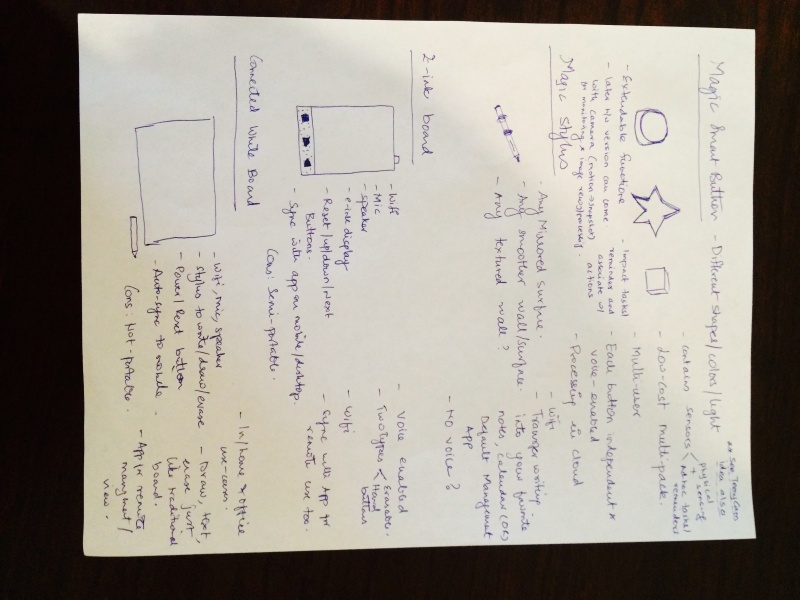 Magic Smart Button - Different shapes/colors/light
idea also
- contains sensors < physical sensing + native tasks/ reminders
- Low-cost multi-pack.
- Multi-user
- Each button independent &
voice-enabled
- Processing in cloud
- Extendable functions
- Later H/W version can come
with camera (motion → snapshot)
or monitoring & image
- Impact tasks/
reminder and
associate w/
actions
Magic Stylus
- Any Mirrored surface.
- Any smoother wall/surface.
- Any textured wall?
- Wifi
- Transfer writing
into your favorite
notes, calendar (OS)
Default Management
App
- No voice?
E-ink board
- Wifi
- Mic
- Speaker
- e-ink display
- Reset/up/down/Next
Buttons.
- Sync with app on mobile/desktop.
Cons: Semi-portable.
- Voice enabled
- Two types < Erasable, Hard buttons
- Wifi
- Sync with App for
remote use too.
Connected White Board
- Wifi, mic, speaker
- Stylus to write/draw/erase
- Power/Reset button
- Auto-sync to mobile.
Cons: Not-portable.
- In/home & office
use-cases
- Draw, text,
erase just
like traditional
board.
- App for remote
managment/
view.